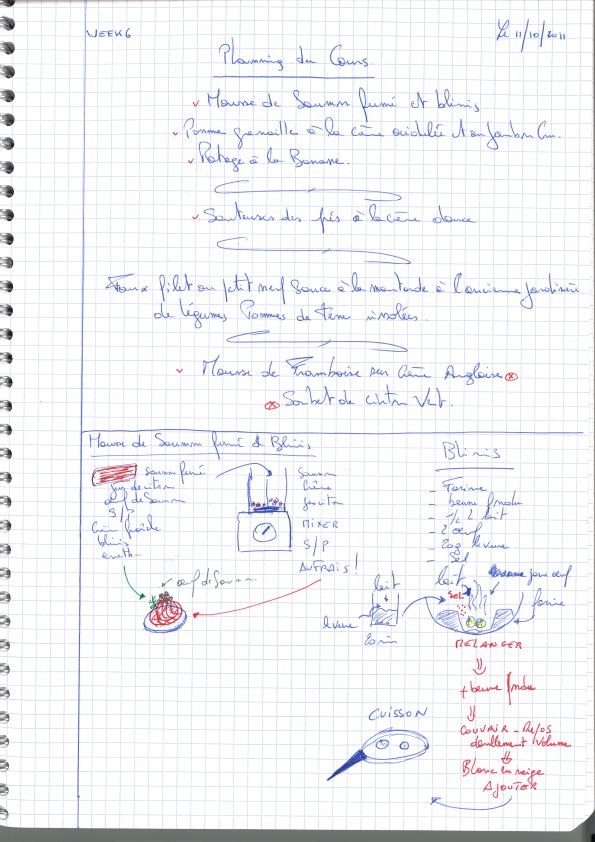 WEEK 6
Le 11/10/2011
Planning du Cours
Mousse de Saumon fumé et blinis
Pomme grenaille à la crème acidulée et au Jambon Cru.
Potage à la Banane.
Sauteuses des prés à la crème douce
Faux filet ou petit nerf Sauce à la moutarde à l'ancienne Jardinière
de légumes Pommes de terre rissolées.
Mousse de Framboise sur Crème Anglaise
Sorbet de citron Vert.
Mousse de Saumon fumé & Blinis
saumon fumé
jus de citron
œuf de Saumon
S/P
Crème fraîche
blinis
aneth
Saumon
Crème
jus citron
MIXER
S/P
AU FRAIS !
œuf de Saumon
Blinis
- Farine
- beurre fondu
- 1/2 L lait
- 2 œuf
- 20g levure
- Sel
lait
levure
20 min
lait
SEL
jaune œuf
farine
MELANGER
+ beurre fondu
COUVRIR - Repos
doublement Volume
Blanc en neige
AJOUTER
CUISSON